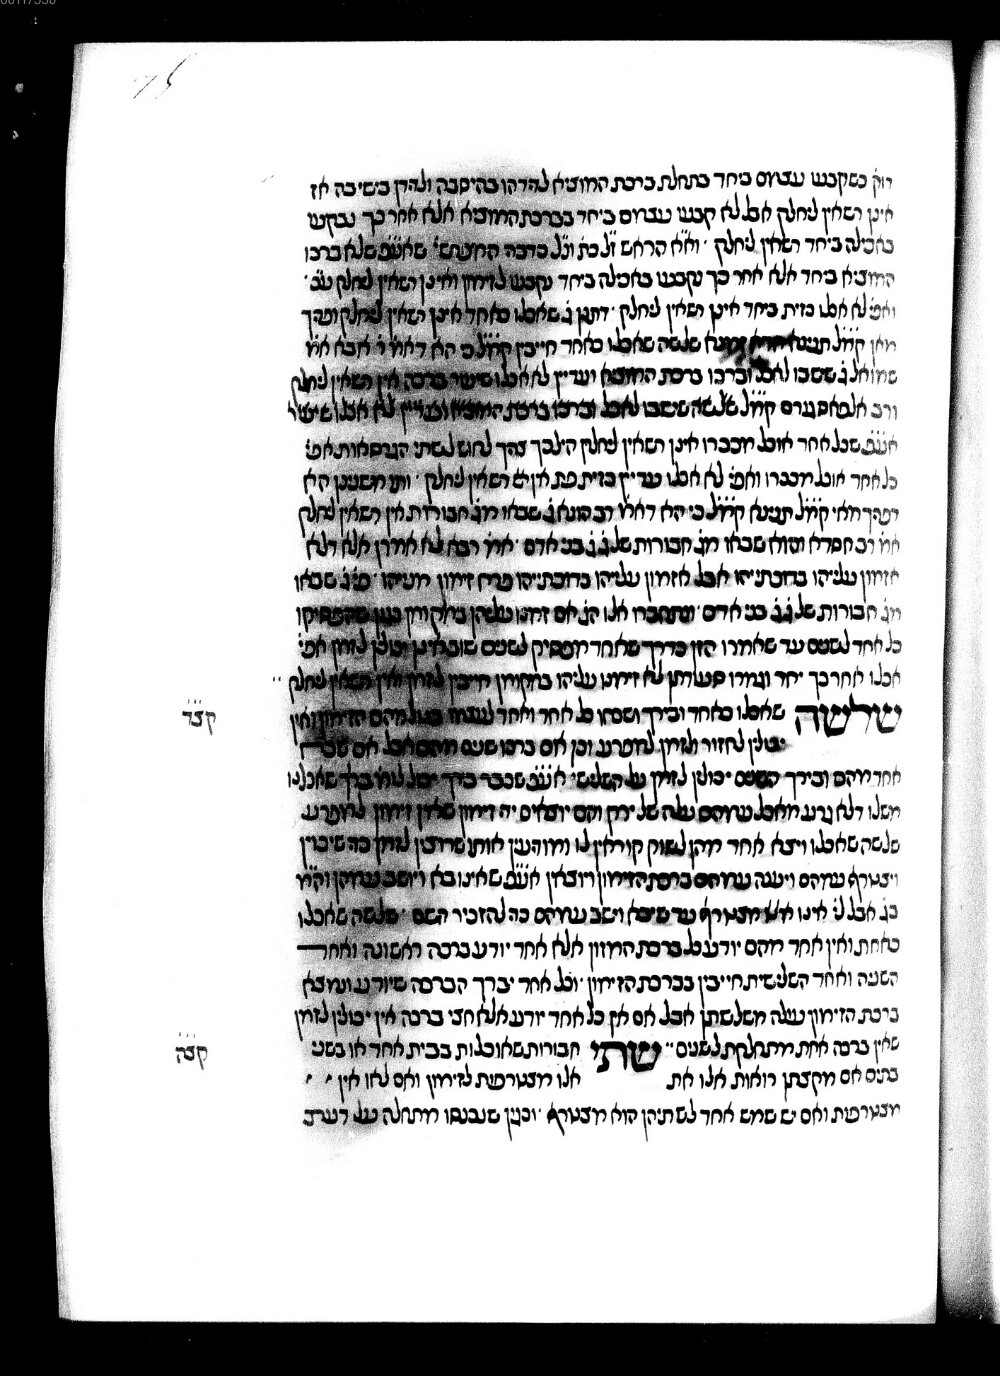 רוק כשקבעו עצמם ביחד בתחלת ברכת המוציא להדהו בהיסבה ולהדין בישיבה אז
אינן רשאין ליחלק אבל לא קבעו עצמם ביחד בברכת המוציא אלא אחר כך נקבעו
באכילה ביחד רשאין ליחלק ׳ והא הראש ז״ל כת׳ שאע״פ שלא ברכו
המוציא ביחד אלא אחר כך נקבעו באכילה ביחד נקבעו לזימון ואינן רשאין ליחלק
ואפי׳ לא אכלו כזית ביחד אינן רשאין ליחלק ׳ דתנן ג׳ שאכלו כאחד אינן רשאין ליחלק ופריך
מאי קמ״ל תנינא שלשה שאכלו כאחד חייבין קמ״ל כי הא דאמ׳ ר׳ אבא אמ׳
שמואל ג׳ שישבו לאכול וברכו ברכת המוציא ועדיין לא אכלו שיעור ברכה אין רשאין ליחלק
ורב אלפאס גורס קמ״ל שלשה שישבו לאכול וברכו ברכת המוציא ועדיין לא אכלו שיעור
אע״פ שכל אחד אוכל מככרו אינן רשאין ליחלק הילכך צריך לחוש לשתי הגרסאות אפי׳
כל אחד אוכל מככרו ואפי׳ לא אכלו עדיין כזית פת אין רשאין ליחלק ׳ ותו משנינן היא
דפריך מאי קמ״ל תנינא קמ״ל כי הא דאמ׳ רב הונא ג׳ שבאו מג׳ חבורות אין רשאין ליחלק
אמ׳ רב חסדא והוא שבאו מג׳ חבורות של ג׳ ג׳ בני אדם ׳ אמ׳ רבא לא אמרן אלא דלא
אזמון עלייהו בדוכתייהו אבל אזמון עלייהו בדוכתייהו פרח זימון מינייהו ׳ פי׳ ג׳ שבאו
מג׳ חבורות של ג׳ ג׳ בני אדם ׳ ונתחברו אלו הג׳ אם זימנו עליהן במקומן כגון שהפסיקו
כל אחד לשנים עד שאמרו הזן כדרך שאחד מפסיק לשנים שוב אינן יכולין לזמן אפי׳
אכלו אחר כך יחד וגמרו סעודתן לא זימנו עליהו במקומן חייבין לזמן ואין רשאין ליחלק
קצד
שלשה שאכלו כאחד ובירך כל אחד ואחד לעצמו מהם הזימון ואין
יכולין לחזור ולזמן למפרע וכן אם ברכו שנים מהם אבל אם שכח
אחד מהם ובירך השנים יכולין לזמן על השלישי אע״פ שכבר בירך יכול לומר ברוך שאכלנו
משלו דלא גרע מאכל עמהם עלה של ירק והם יוצאים ידי זימון שאין זימון למפרע
שלשה שאכלו ויצא אחד מהן לשוק קוראין לו ומודיעין אותו שרוצין לזמן כדי שיכוין
ויצטרף עמהם ויענה עמהם ברכת הזימון ויוצאין אע״פ שאינו בא ויושב עמהן וה״מ
בג׳ אבל לי׳ אינו מצטרף עד שיבא וישב עמהם כדי להזכיר השם ׳ שלשה שאכלו
כאחת ואין אחד מהם יודע כל ברכת המזון אלא אחד יודע ברכה ראשונה ואחד
השניה ואחד השלישית חייבין בברכת הזימון ׳ וכל אחד יברך הברכה שיודע ונמצא
ברכת הזימון עולה משלשתן אבל אם אין כל אחד יודע אלא חצי ברכה אין יכולין לזמן
שאין ברכה אחת מתחלקת לשנים ׃
קצה
שתי חבורות שאוכלות בבית אחד או בשני
בתים אם מקצתן רואות אלו את אלו מצטרפות לזימון ואם לאו אין
מצטרפות ואם יש שמש אחד לשתיהן הוא מצטרף ׳ וכגון שנכנסו מתחלה על דעת